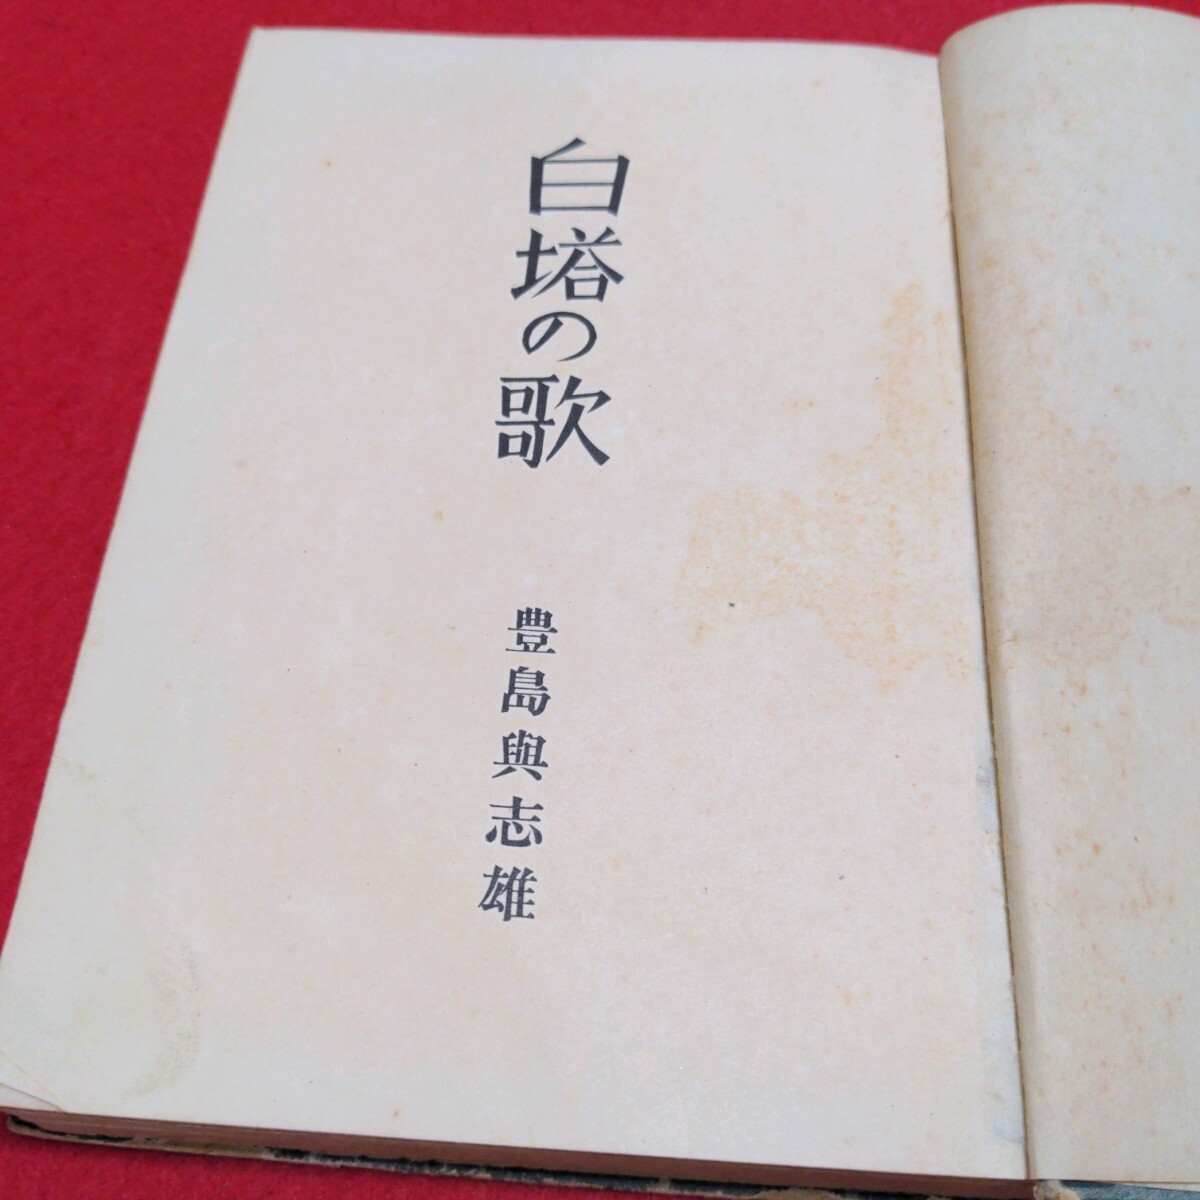 白塔の歌
豊島與志雄